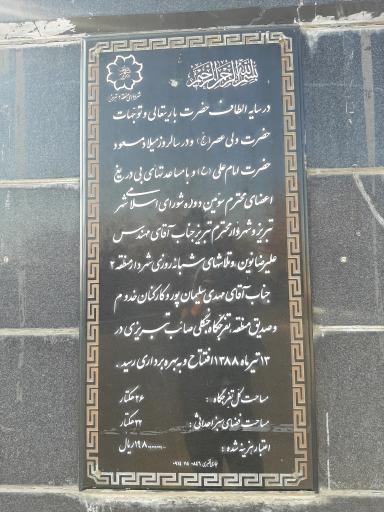 بسم الله الرحمن الرحیم
شهرداری منطقه ۲ تبریز
در سایه الطاف حضرت باریتعالی و توجهات
حضرت ولی عصر (عج) و در سالروز میلاد مسعود
حضرت امام علی (ع) و با مساعدتهای بی دریغ
اعضای محترم سومین دوره شورای اسلامی شهر
تبریز و شهردار محترم تبریز جناب آقای مهندس
علیرضا نوین ، و تلاشهای شبانه روزی شهردار منطقه ۲
جناب آقای مهدی سلیمان پور و کارکنان خدوم
و صدیق منطقه ، تفرجگاه جنگلی صائب تبریزی در
۱۳ تیر ماه ۱۳۸۸ افتتاح و به بهره برداری رسید .
مساحت کل تفرجگاه : ۲۶ هکتار
مساحت فضای سبز احداثی : ۲۲ هکتار
اعتبار هزینه شده :
ریال